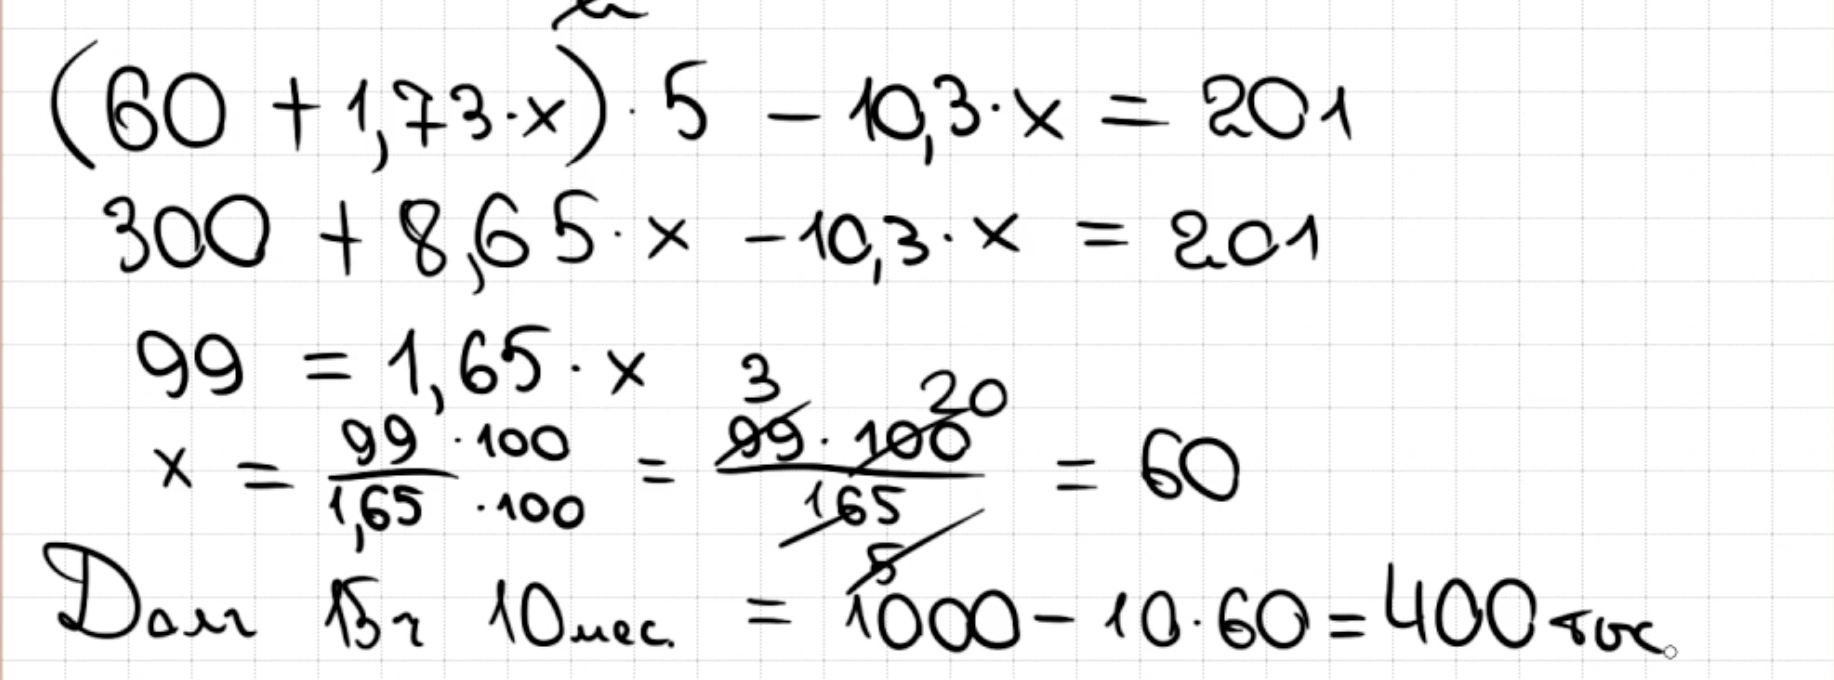 (60 + 1,73·x)·5 - 10,3·x = 201
300 + 8,65·x - 10,3·x = 201
99 = 1,65·x
x = 99·100 / 1,65·100 = 99·100 / 165 = 60
3 20
5
Долг 15г 10 мес. = 1000 - 10·60 = 400 тыс.